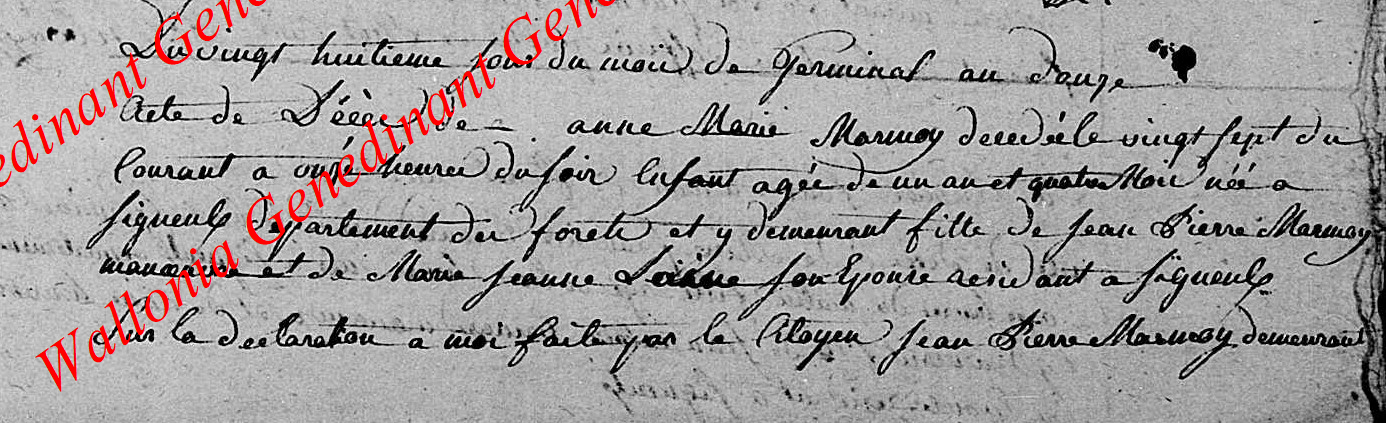 Du vingt huitieme jour du mois de Germinal an douze
Acte de Décès de anne Marie Marmoy decedée le vingt sept du
Courant a onze heures du soir Enfant agée de un an et quatre Mois née a
signeulx departement des forets et y demeurant fille de jean Pierre Marmoy
manoeuvre et de Marie jeanne son Epouse residant a signeulx
sur la declaration a moi faite par le Citoyen jean Pierre Marmoy demeurant
Wallonia Genedinant Genedinant Gene
edinant Gene